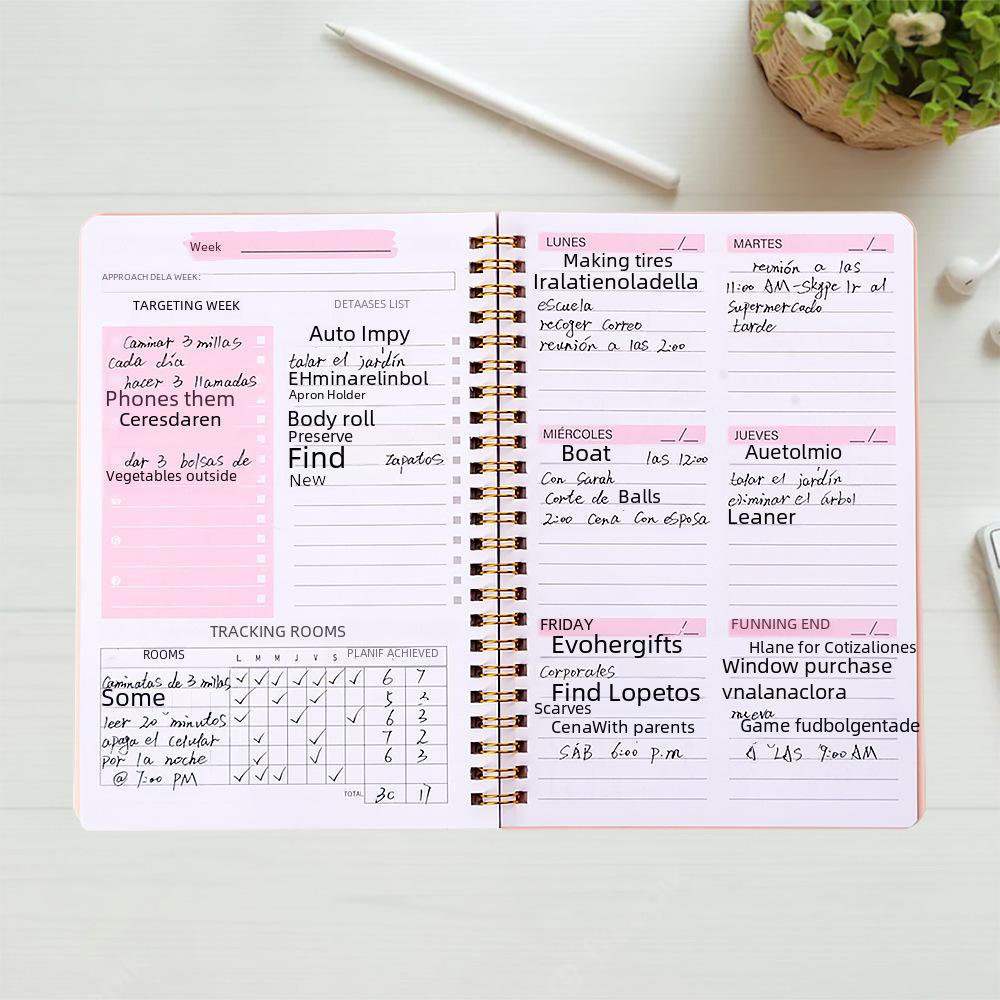 Week
APPROACH DELA WEEK:
TARGETING WEEK
Caminar 3 millas
Cada día
hacer 3 llamadas
Phones them
Ceresdaren
dar 3 bolsas de
Vegetables outside
DETAASES LIST
Auto Impy
talar el jardín
EHminarelinbol
Apron Holder
Body roll
Preserve
Find zapatos
New
TRACKING ROOMS
ROOMS L M M J V S PLANIF ACHIEVED
Caminatas de 3 millas 6 7
Some 5
leer 20 minutos 6 3
apaga el celular 7 2
por la noche 6 3
@ 7:00 PM
TOTAL 30 17
LUNES __/__
Making tires
Iralatienoladella
escuela
recoger correo
reunión a las 2:00
MARTES __/__
reunión a las
11:00 AM-Skype Ir al
Supermercado
tarde
MIÉRCOLES __/__
Boat las 12:00
Con Sarah
Corte de Balls
2:00 Cena Con esposa
JUEVES __/__
Auetolmio
talar el jardín
eliminar el árbol
Leaner
FRIDAY __/__
Evohergifts
Corporales
Find Lopetos
Scarves
CenaWith parents
SÁB 6:00 p.m
FUNNING END __/__
Hlane for Cotizaliones
Window purchase
vnalanaclora
nueva
Game fudbolgentade
Á LAS 9:00 AM